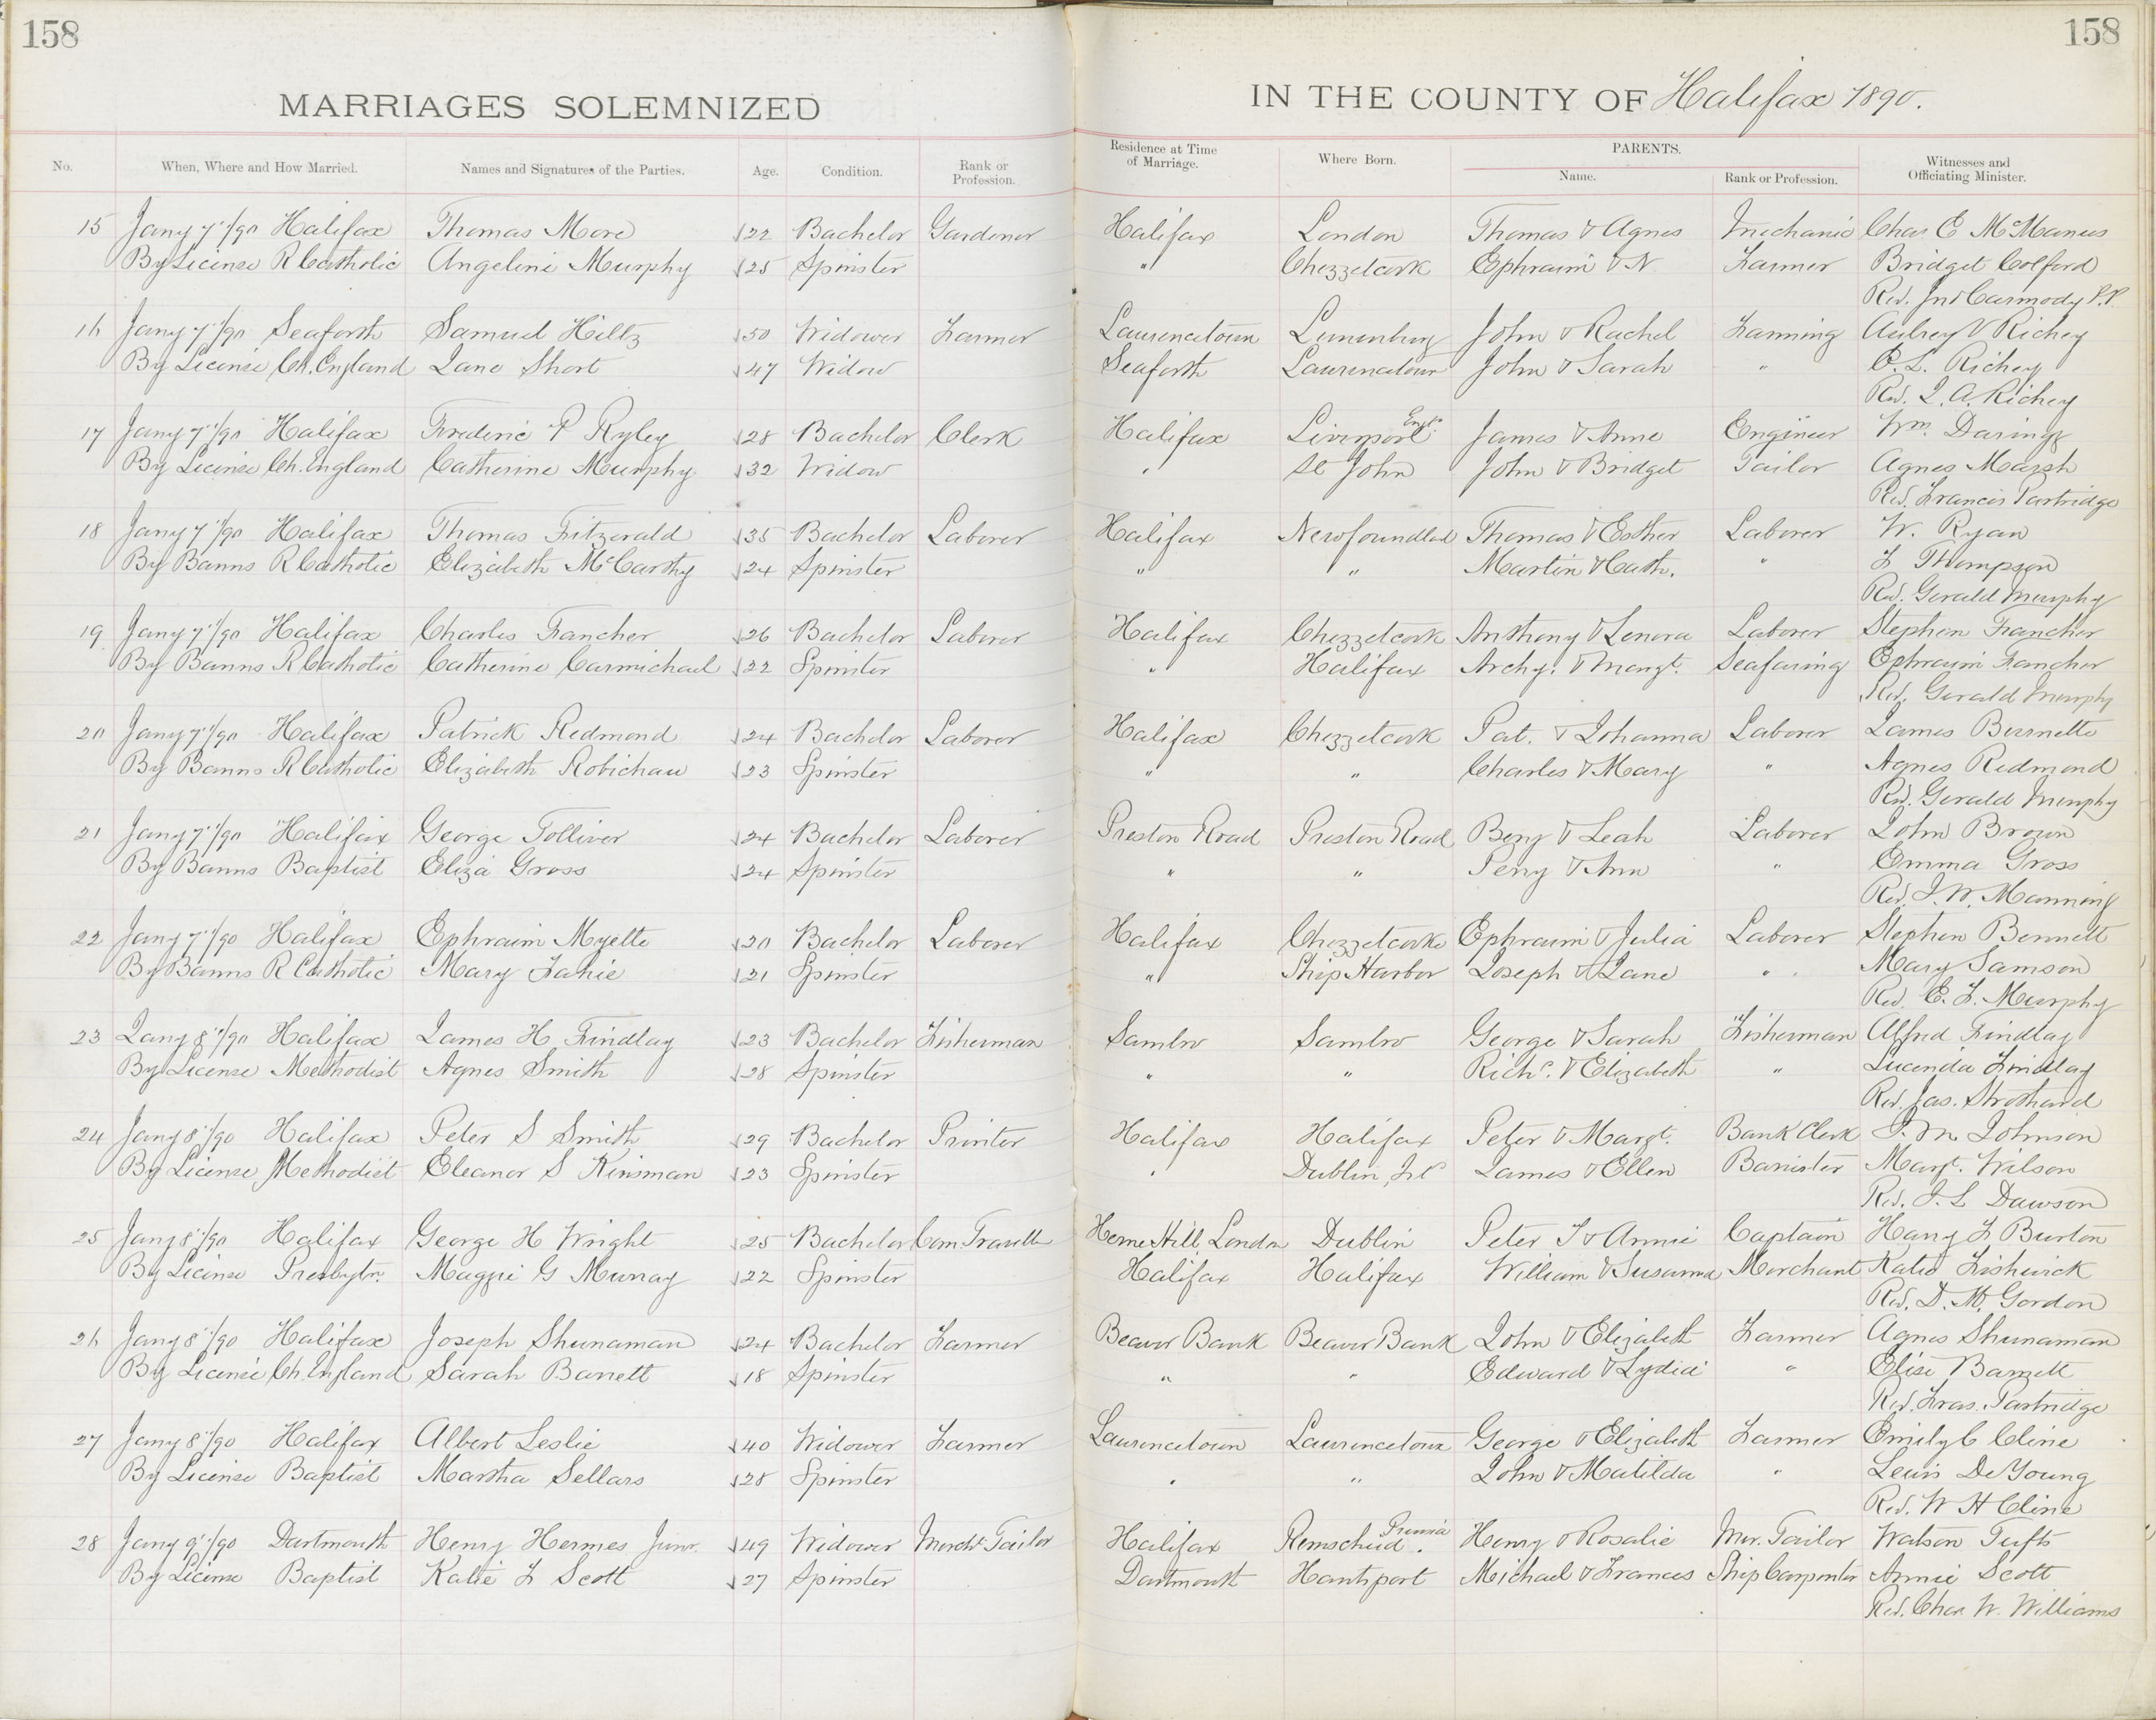 158
158
MARRIAGES SOLEMNIZED
IN THE COUNTY OF Halifax 1890.
No. When, Where and How Married. Names and Signatures of the Parties. Age. Condition. Rank or Profession. Residence at Time of Marriage. Where Born. PARENTS. Name. Rank or Profession. Witnesses and Officiating Minister.
15 Jany 7"/90 Halifax Thomas More 22 Bachelor Gardener Halifax London Thomas & Agnes Mechanic Chas E McManus
By License R Catholic Angeline Murphy 25 Spinster " Chezzetcook Ephraim & N Farmer Bridget Colford
Rev. Jno Carmody P.P.
16 Jany 7"/90 Seaforth Samuel Hiltz 50 Widower Farmer Laurencetown Lunenburg John & Rachel Farming Aubrey V Richey
By License Ch. England Jane Short 47 Widow Seaforth Laurencetown John & Sarah " C. L. Richey
Rev. J. A. Richey
17 Jany 7"/90 Halifax Frederic P Ryley 28 Bachelor Clerk Halifax Liverpool Engd. James & Anne Engineer Wm. Daring
By License Ch. England Catherine Murphy 32 Widow " St John John & Bridget Tailor Agnes Marsh
Rev. Francis Partridge
18 Jany 7"/90 Halifax Thomas Fitzgerald 35 Bachelor Laborer Halifax Newfoundlad Thomas & Esther Laborer W. Ryan
By Banns R Catholic Elizabeth McCarthy 24 Spinster " " Martin & Cath. " F Thompson
Rev. Gerald Murphy
19 Jany 7"/90 Halifax Charles Francher 26 Bachelor Laborer Halifax Chezzetcook Anthony & Lenora Laborer Stephen Francher
By Banns R Catholic Catherine Carmichael 22 Spinster " Halifax Archy. & Margt. Seafaring Ephraim Francher
Rev. Gerald Murphy
20 Jany 7"/90 Halifax Patrick Redmond 24 Bachelor Laborer Halifax Chezzetcook Pat. & Johanna Laborer James
By Banns R Catholic Elizabeth Robichau 23 Spinster " " Charles & Mary " Agnes Redmond
Rev. Gerald Murphy
21 Jany 7"/90 Halifax George Tolliver 24 Bachelor Laborer Preston Road Preston Road Benj & Leah Laborer John Brown
By Banns Baptist Eliza Gross 24 Spinster " " Perry & Ann " Emma Gross
Rev. J. W. Manning
22 Jany 7"/90 Halifax Ephraim Myette 20 Bachelor Laborer Halifax Chezzetcooke Ephraim & Julia Laborer Stephen Bennett
By Banns R Catholic Mary Fahie 21 Spinster " Ship Harbor Joseph & Jane " Mary Samson
Rev. E. F. Murphy
23 Jany 8"/90 Halifax James H Findlay 23 Bachelor Fisherman Sambro Sambro George & Sarah Fisherman Alfred Findlay
By License Methodist Agnes Smith 28 Spinster " " Richd. & Elizabeth " Lucinda Findlay
Rev. Jas. Strothard
24 Jany 8"/90 Halifax Peter S Smith 29 Bachelor Printer Halifax Halifax Peter & Margt. Bank Clerk J. M. Johnson
By License Methodist Eleanor S Kinsman 23 Spinster " Dublin, Irl James & Ellen Barrister Margt. Wilson
Rev. J. L Dawson
25 Jany 8"/90 Halifax George H Wright 25 Bachelor Com. Traveller Herne Hill, London Dublin Peter T & Annie Captain Harry F Burton
By License Presbytn. Maggie G Murray 22 Spinster Halifax Halifax William & Susanna Merchant Katie Fishwick
Rev. D. M. Gordon
26 Jany 8"/90 Halifax Joseph Shunaman 24 Bachelor Farmer Beaver Bank Beaver Bank John & Elizabeth Farmer Agnes Shunaman
By License Ch. England Sarah Barrett 18 Spinster " " Edward & Lydia " Elise Barrett
Rev. Fras. Partridge
27 Jany 8"/90 Halifax Albert Leslie 40 Widower Farmer Laurencetown Laurencetown George & Elizabeth Farmer Emily C Cline
By License Baptist Martha Sellars 28 Spinster " " John & Matilda " Lewis DeYoung
Rev. W H Cline
28 Jany 9"/90 Dartmouth Henry Hermes Junr. 49 Widower Mercht Tailor Halifax Remscheid Prussia. Henry & Rosalie Mer. Tailor Watson Tufts
By License Baptist Katie F Scott 27 Spinster Dartmouth Hantsport Michael & Frances Ship Carpenter Annie Scott
Rev. Chas W. Williams